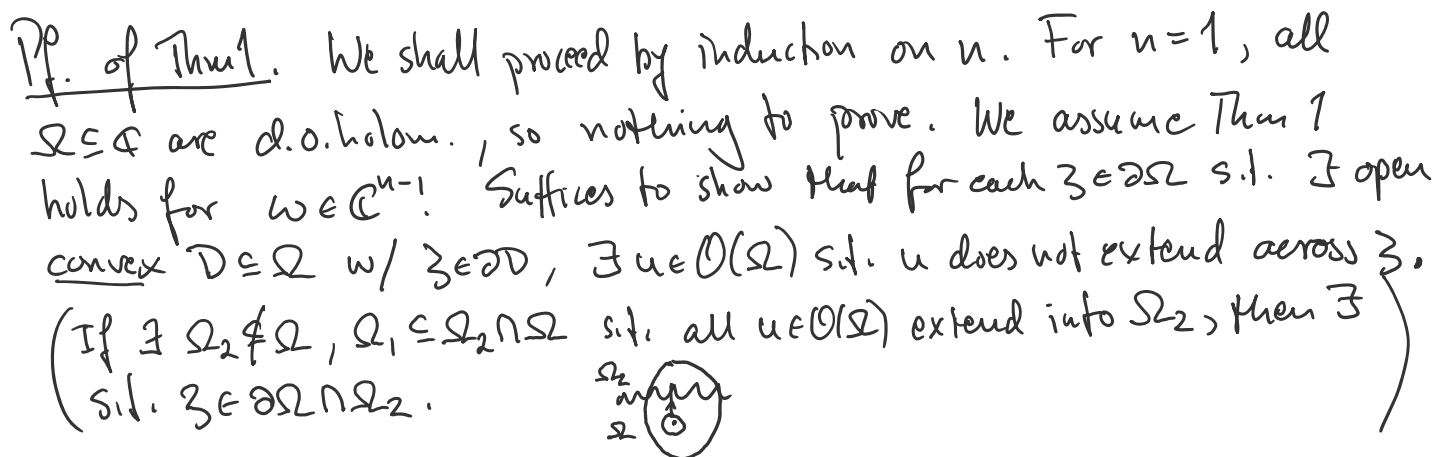 Pf. of Thm 1. We shall proceed by induction on n. For n=1, all
Ω ⊆ ℂ are d.o.holom., so nothing to prove. We assume Thm 1
holds for ω ∈ ℂⁿ⁻¹. Suffices to show that for each ʒ ∈ ∂Ω s.t. ∃ open
convex D ⊆ Ω w/ ʒ ∈ ∂D, ∃ u ∈ O(Ω) s.t. u does not extend across ʒ.
(If ∃ Ω₂ ⊄ Ω, Ω₁ ⊆ Ω₂ ∩ Ω s.t. all u ∈ O(Ω) extend into Ω₂, then ∃
s.t. ʒ ∈ ∂Ω ∩ Ω₂.)
Ω₂
Ω